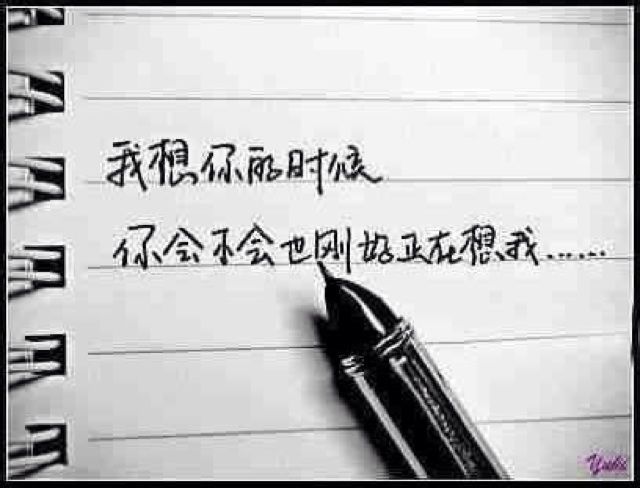 我想你的时候
你会不会也刚好正在想我......
Yuki